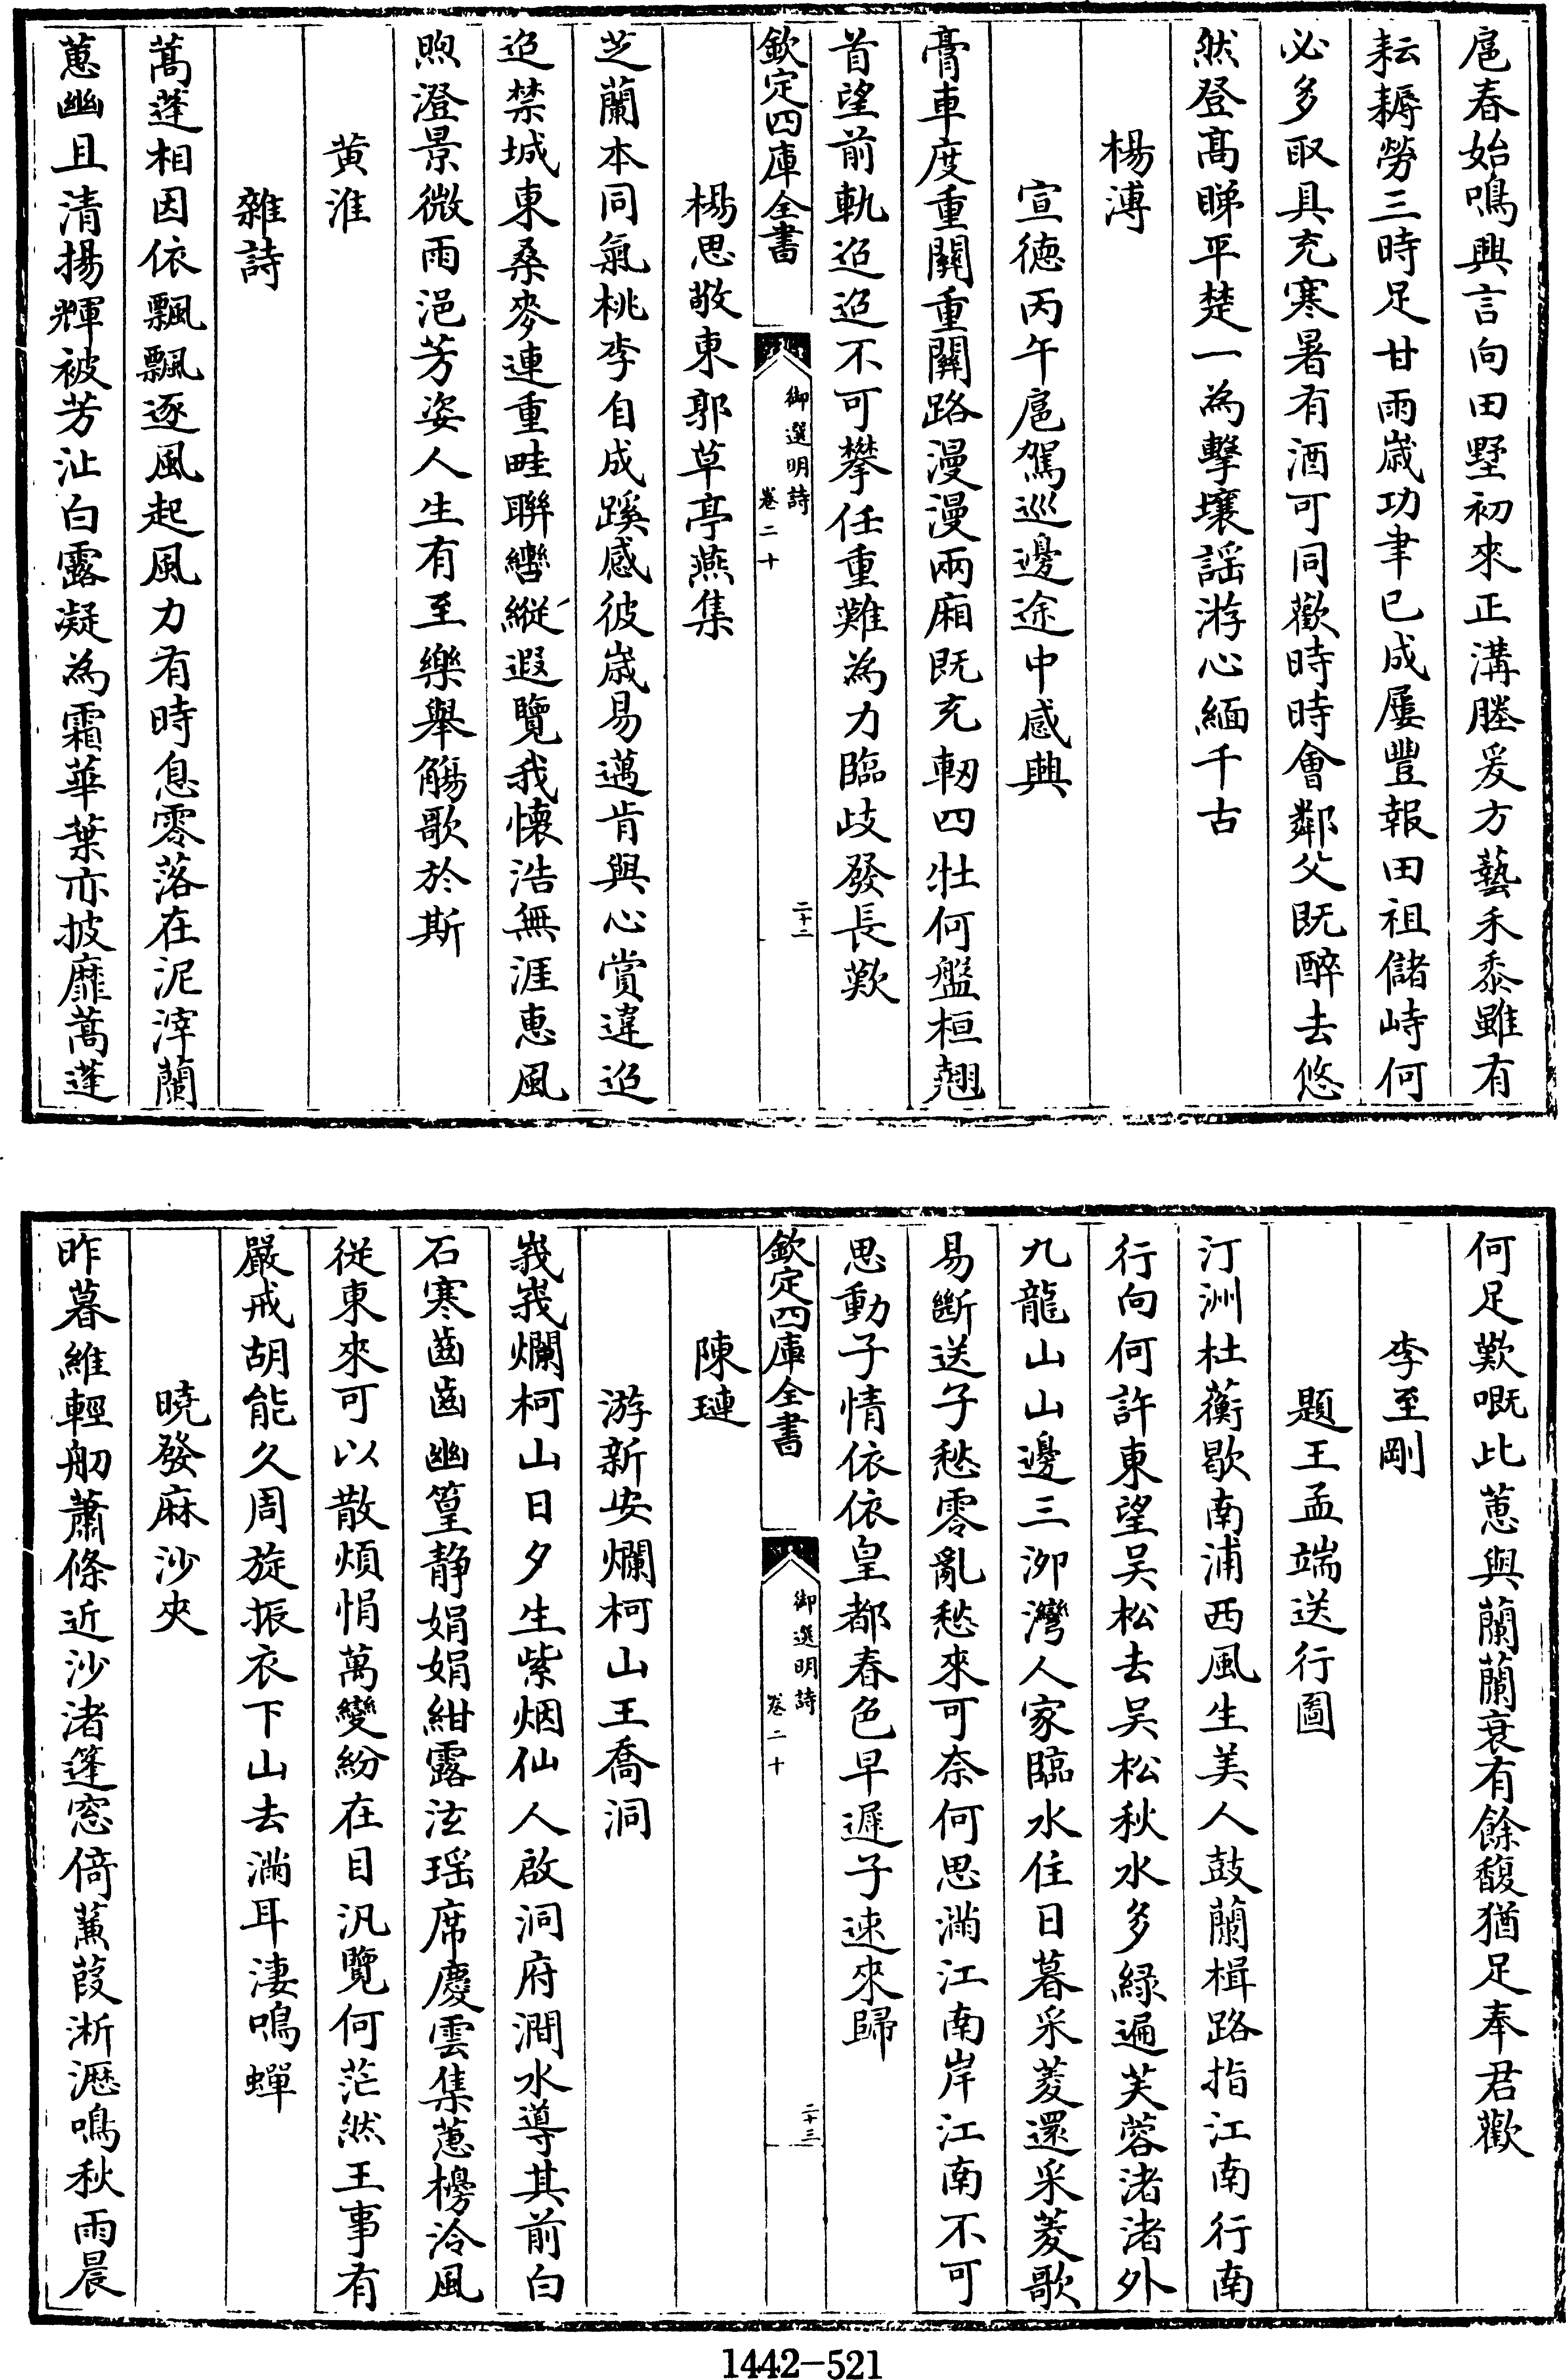 扈春始鳴興言向田墅初來正溝塍爰方藝禾黍雖有
耘耨勞三時足甘雨歲功聿已成屢豐報田祖儲峙何
必多取具充寒暑有酒可同歡時時會鄰父既醉去悠
然登高睇平楚一為擊壤謡游心緬千古
楊溥
宣德丙午扈駕巡邊途中感興
膏車度重關重關路漫漫兩廂既充軔四牡何盤桓翹
首望前軌迢迢不可攀任重難為力臨歧發長歎
欽定四庫全書
御選明詩
卷二十
二十二
楊思敬東郭草亭燕集
芝蘭本同氣桃李自成蹊感彼歲易邁肯與心賞違迢
迢禁城東桑麥連重畦聯轡縱遐覽我懷浩無涯惠風
煦澄景微雨浥芳姿人生有至樂舉觴歌於斯
黃淮
雜詩
蒿蓬相因依飄飄逐風起風力有時息零落在泥滓蘭
蕙幽且清揚輝被芳沚白露凝為霜華葉亦披靡蒿蓬
何足歎嘅此蕙與蘭蘭衰有餘馥猶足奉君歡
李至剛
題王孟端送行圖
汀洲杜蘅歇南浦西風生美人鼓蘭楫路指江南行南
行向何許東望吴松去吴松秋水多緑遍芙蓉渚渚外
九龍山山邊三泖灣人家臨水住日暮采菱還采菱歌
易斷送子愁零亂愁來可奈何思滿江南岸江南不可
思動子情依依皇都春色早遲子速來歸
欽定四庫全書
御選明詩
卷二十
二十三
陳璉
游新安爛柯山王喬洞
峩峩爛柯山日夕生紫烟仙人啟洞府澗水導其前白
石寒齒齒幽篁静娟娟紺露泫瑶席慶雲集蕙櫋泠風
從東來可以散煩悁萬變紛在目汎覽何茫然王事有
嚴戒胡能久周旋振衣下山去滿耳淒鳴蟬
曉發麻沙夾
昨暮維輕舠蕭條近沙渚篷窓倚蒹葭淅瀝鳴秋雨晨
1442-521